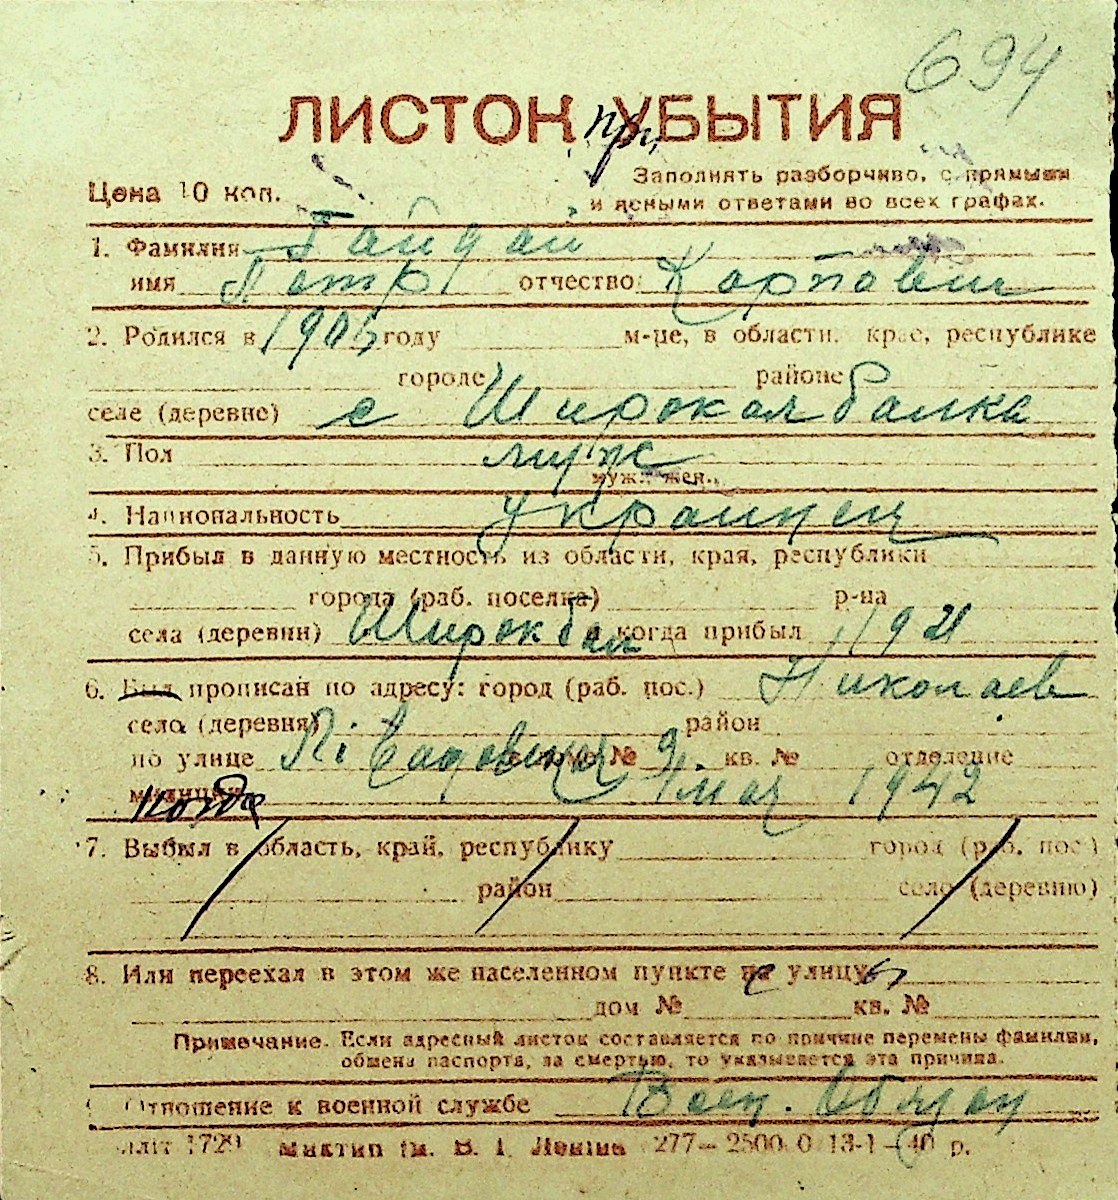 694
ЛИСТОК при УБЫТИЯ
Цена 10 коп.
Заполнять разборчиво, с прямыми
и ясными ответами во всех графах.
1. Фамилия Гайдай
имя Петр отчество Карпович
2. Родился в 1906 году м-це, в области, крае, республике
городе районе
селе (деревне) с Широкая балка
3. Пол муж
мужч. жен.
4. Национальность украинец
5. Прибыл в данную местность из области, края, республики
города (раб. поселка) р-на
села (деревни) Широк бал и когда прибыл 1921
6. Был прописан по адресу: город (раб. пос.) Николаев
село (деревня) район
по улице дом № 9 кв. № отделение
милиции когда 9 мая 1942
7. Выбыл в область, край, республику город (раб. пос.)
район село (деревню)
8. Или переехал в этом же населенном пункте с улицы
дом № кв. №
Примечание. Если адресный листок составляется по причине перемены фамилии,
обмена паспорта, за смертью, то указывается эта причина.
Отношение к военной службе Воен. Обязан
1729 Миктип им. В. І. Леніна 277—2500.0 13-1—40 р.